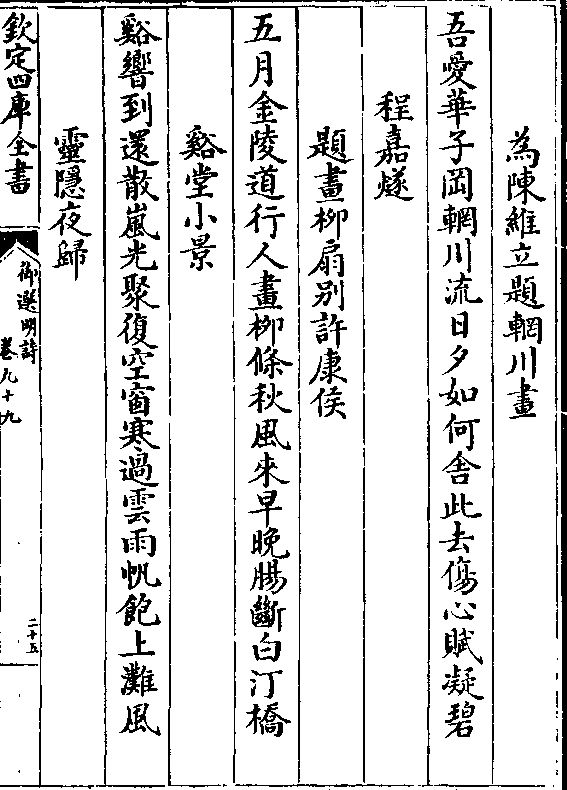 為陳維立題輞川畫
吾愛華子岡輞川流日夕如何舍此去傷心賦凝碧
程嘉燧
題畫柳扇别許康侯
五月金陵道行人畫柳條秋風來早晚腸斷白汀橋
谿堂小景
谿響到還散嵐光聚復空窗寒過雲雨帆飽上灘風
靈隱夜歸
欽定四庫全書
御選明詩
卷九十九
二十五